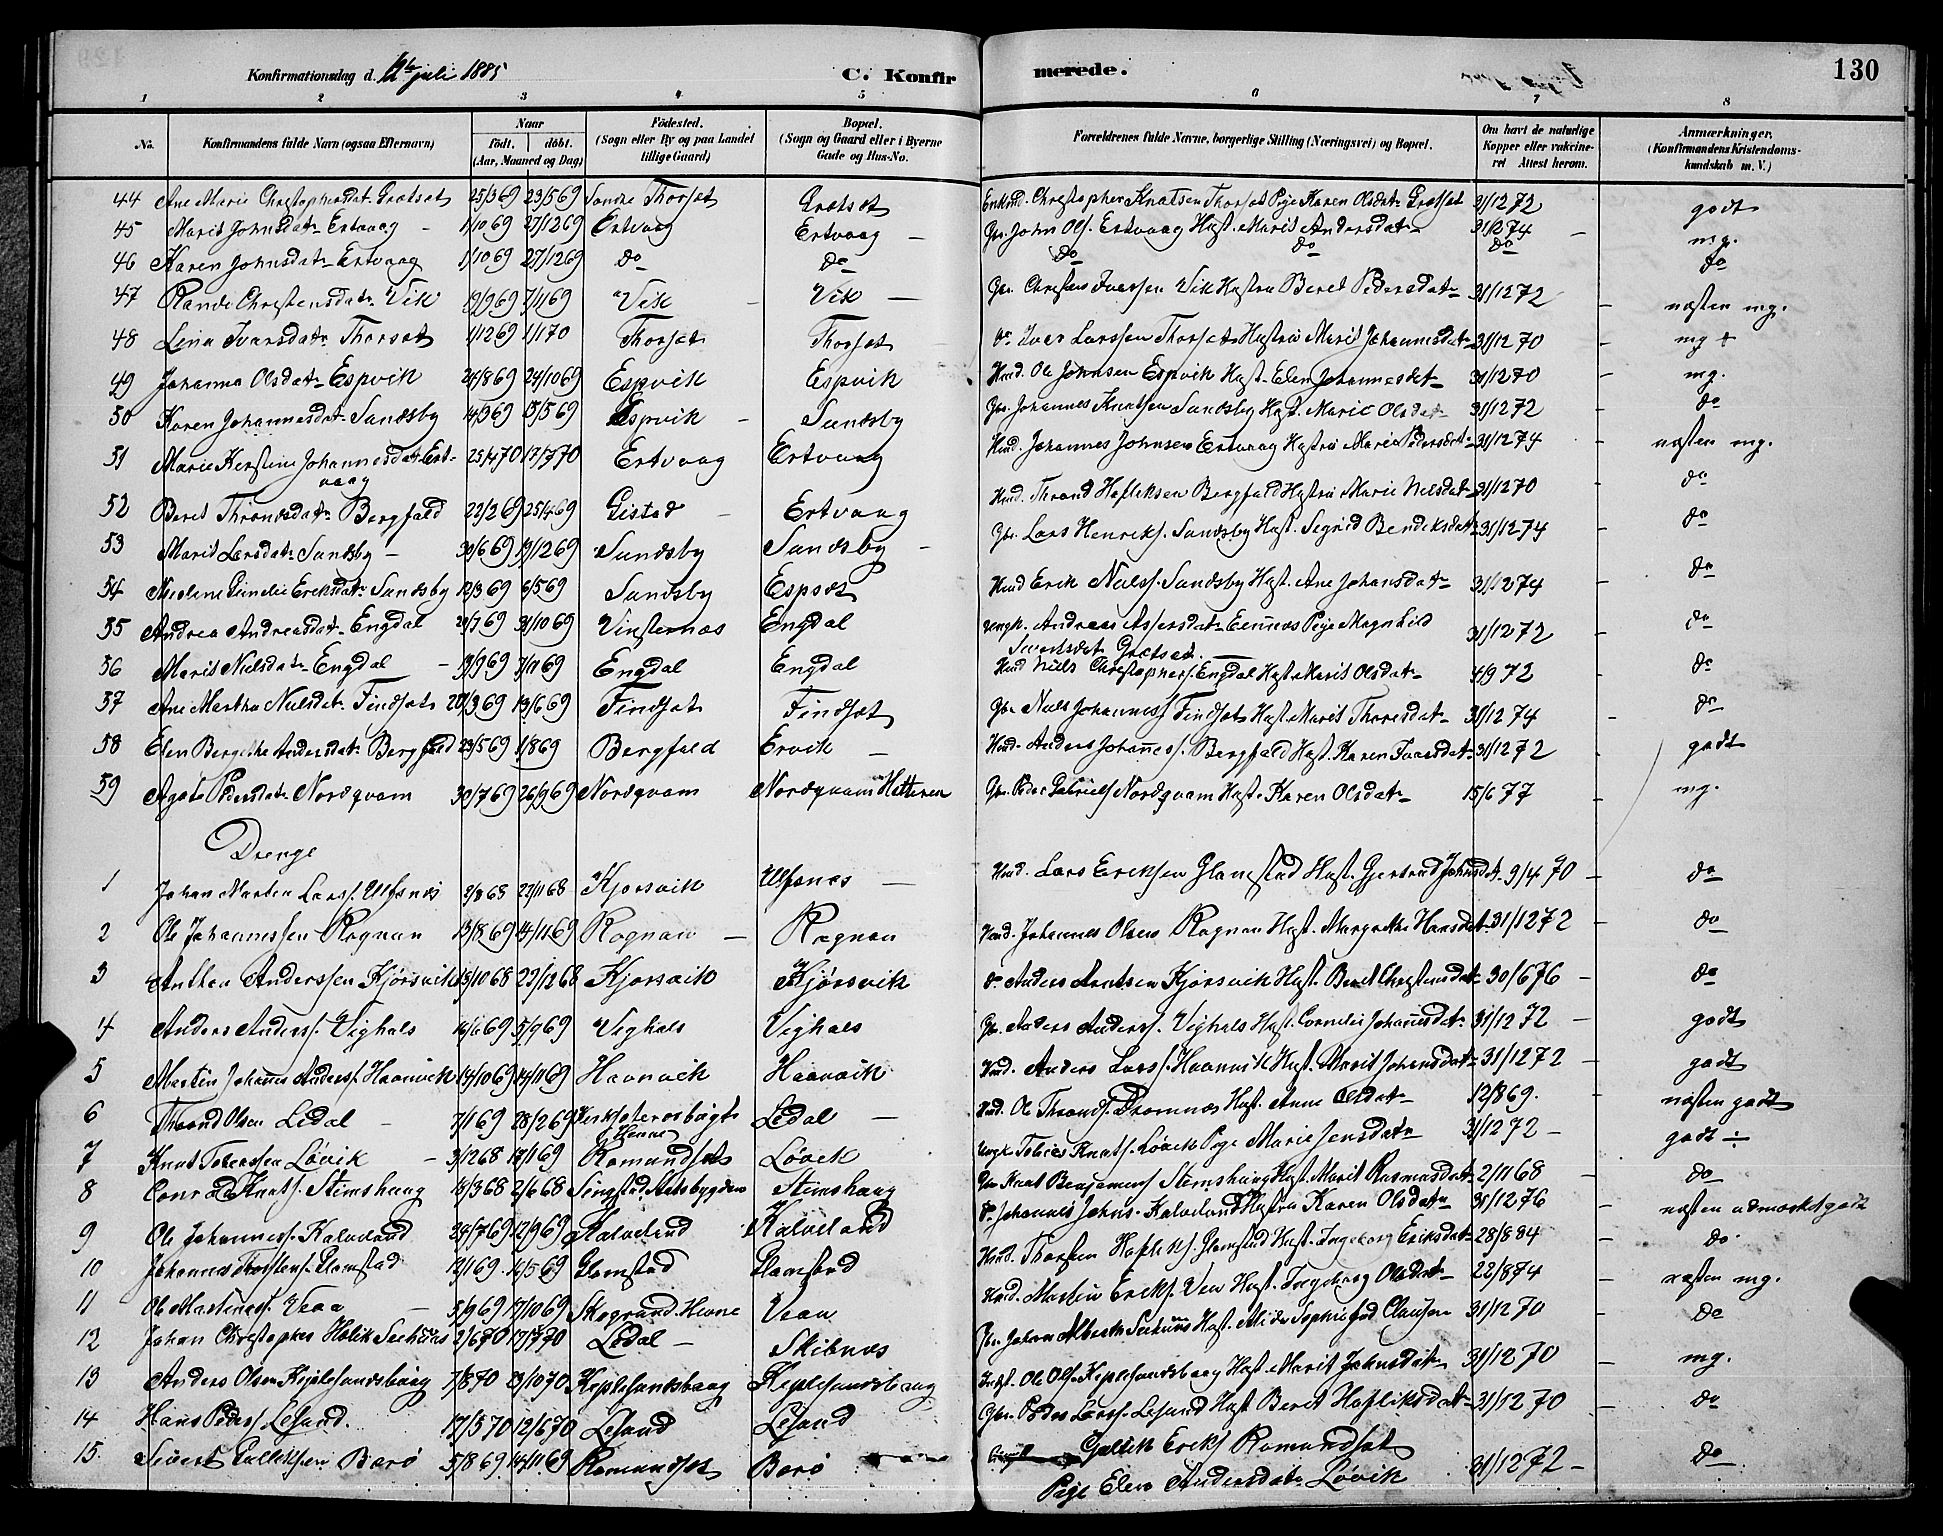 Konfirmationsdag d. 12te juli 1885 C. Konfirmerede. 130
1 2 3 4 5 6 7 8
No. Konfirmandens fulde Navn (ogsaa Efternavn) Naar født. døbt. (Aar, Maaned og Dag) Fødested. (Sogn eller By og paa Landet tillige Gaard) Bopæl. (Sogn og Gaard eller i Byerne Gade og Hus-No. Forældrenes fulde Navne, borgerlige Stilling (Næringsvei) og Bopæl. Om havt de naturlige Kopper eller vakcineret Attest herom. Anmærkninger. (Konfirmandens Kristendomskundskab m. V.)
44 Ane Marie Christophersdatr Grøtset 25/3 69 23/5 69 Søndre Thorset Grøtset Enkmd. Christopher Knutsen Thorset Pige Karen Olsdatr Grøtset 31/12 72 godt
45 Marit Johnsdatr Ertvaag 1/10 69 27/12 69 Ertvaag Ertvaag Gbr. John Ols. Ertvaag Hust. Marit Andersdatr 31/12 74 mg.
46 Karen Johnsdatr Ertvaag 1/10 69 27/12 69 do do do do do do
47 Rande Christensdatr Vik 19/9 69 7/11 69 Vik Vik Gbr. Christen Ivarsen Vik Hustru Beret Pedersdatr 31/12 72 næsten mg.
48 Lina Ivarsdatr Thorset 1/12 69 1/1 70 Thorset Thorset do Iver Larssen Thorset Hustru Marit Johannesdatr 31/12 70 mg +
49 Johanna Olsdatr Espvik 24/8 69 24/10 69 Espvik Espvik Hmd. Ole Johnsen Espvik Hust. Elen Johannesdatr 31/12 70 mg.
50 Karen Johannesdatr Sundsby 14/3 69 15/5 69 Espvik Sundsby Gbr. Johannes Knutsen Sundsby Hust. Marit Olsdatr 31/12 72 do
51 Marie Kirstine Johannesdatr Ertvaag 25/4 70 17/7 70 Ertvaag Ertvaag Hmd. Johannes Johnsen Ertvaag Hustru Marie Pedersdatr 31/12 74 næsten mg.
52 Beret Throndsdatr Bergfald 22/2 69 25/4 69 Gistad Ertvaag Hmd. Thrond Hafliksen Bergfald Hustru Marie Nilsdatr 31/12 70 do
53 Marit Larsdatr Sundsby 30/6 69 19/12 69 Sundsby Sundsby Gbr. Lars Henriks. Sundsby Hust. Segrid Bendiksdatr 31/12 74 do
54 Eriksdatr Sundsby 12/3 69 6/5 69 Sundsby Espset Hmd Erik Niels. Sundsby Hust. Ane Johansdatr 31/12 74 do
55 Andrea Andreasdatr Engdal 31/10 69 Vinsternes Engdal Ungk. Andreas Pige Magnhild Sivertsdatr Grøtset 31/12 72 do
56 Marit Nielsdatr Engdal 19/9 69 7/11 69 Engdal Engdal Hmd Niels Christophers. Engdal Hust. Marit Olsdatr 4/9 72 do
57 Ane Martha Nielsdatr Findset 20/3 69 13/6 69 Findset Findset Gbr Niels Johanness Findset Hust. Marit Thoresdatr 31/12 74 do
58 Elen Bergithe Andersdatr Bergfald 23/5 69 1/8 69 Bergfald Ervik Hmd. Anders Johanness. Bergfald Hust. Karen Ivarsdatr 31/12 72 godt
59 Agate Pedersdatr Nordqvam 30/7 69 26/9 69 Nordqvam Nordqvam Gbr. Peder Gabriels Nordqvam Hust. Karen Olsdatr 15/6 77 mg.
Drenge
1 Johan Martin Larss. Ulfsnes 2/8 68 22/11 68 Kjørsvik Ulfsnes Hmd. Lars Eriksen Glamstad Hust. Gjertrud Johnsdatr 9/4 70 do
2 Ole Johannessen Rognan 13/8 69 14/11 69 Rognan Rognan Hmd. Johannes Olsen Rognan Hust. Margrethe Hansdatr 31/12 72 do
3 Anthon Anderssen Kjørsvik 13/10 68 22/12 68 Kjørsvik Kjørsvik do Anders Arntsen Kjørsvik Hust. Beret Christensdatr 30/6 76 do
4 Anders Anderss. Vighals 16/6 69 5/9 69 Vighals Vighals Gbr. Anders Anderss. Vighals Hust. Cornelia Johannesdatr 31/12 72 godt
5 Martin Johannes Anderss. Haavik 14/10 69 14/11 69 Haavik Haavik Hmd. Anders Larss. Haavik Hust. Marit Johansdatr 31/12 72 godt
6 Thrond Olsen Ledal 7/1 69 28/2 69 i Hevne Ledal Hmd. Ole Thronds. Dromnes Hust. Anne Olsdatr 12/8 69. næsten godt
7 Knut Tobiassen Løvik 3/12 68 17/1 69 Romundset Løvik Ungk Tobias Knuts. Løvik Pige Marie Jensdatr 31/12 72 godt ÷
8 Conrad Knuts. Stemshaug 18/3 68 2/6 68 Stemshaug Gbr Knut Benjamins Stemshaug Hust. Marit Rasmusdatr 2/11 68 do
9 Ole Johanness. Kalveland 24/7 69 12/9 69 Kalveland Kalveland do Johannes Johns. Kalveland Hustru Karen Olsdatr 31/12 76 næsten udmærket godt
10 Johannes Thorstens. Glamstad 12/1 69 16/5 69 Glamstad Glamstad Hmd. Thorsten Hafliks. Glamstad Hust. Ingeborg Eriksdatr 28/8 84 do
11 Ole Martinuss. Vean 5/9 69 17/10 69 Hevne Vean Hmd. Martin Eriks. Vean Hust. Ingeborg Olsdatr 22/8 74 næsten mg.
12 Johan Christopher 2/6 70 17/7 70 Ledal Skibnes Gbr. Johan Albert Hust. Sophie fød Clausen 31/12 70 do
13 Anders Olsen Kjeplesundsbaag 7/8 70 23/10 70 Kjeplesundsbaag Kjeplesundsbaag Indst. Ole Ols. Kjeplesundsbaag Hust. Marit Johnsdatr 31/12 70 mg.
14 Hans Peders. Lesund. 17/5 70 12/6 70 Lesund Lesund Gbr. Peder Larss. Lesund Hust Beret Hafliksdatr 31/12 70 do
15. Sivert Gulliksen Barø 5/8 69 14/11 69 Romundset Barø Gullik Eriks Romundset Pige Elen Andersdatr Løvik 31/12 72 do